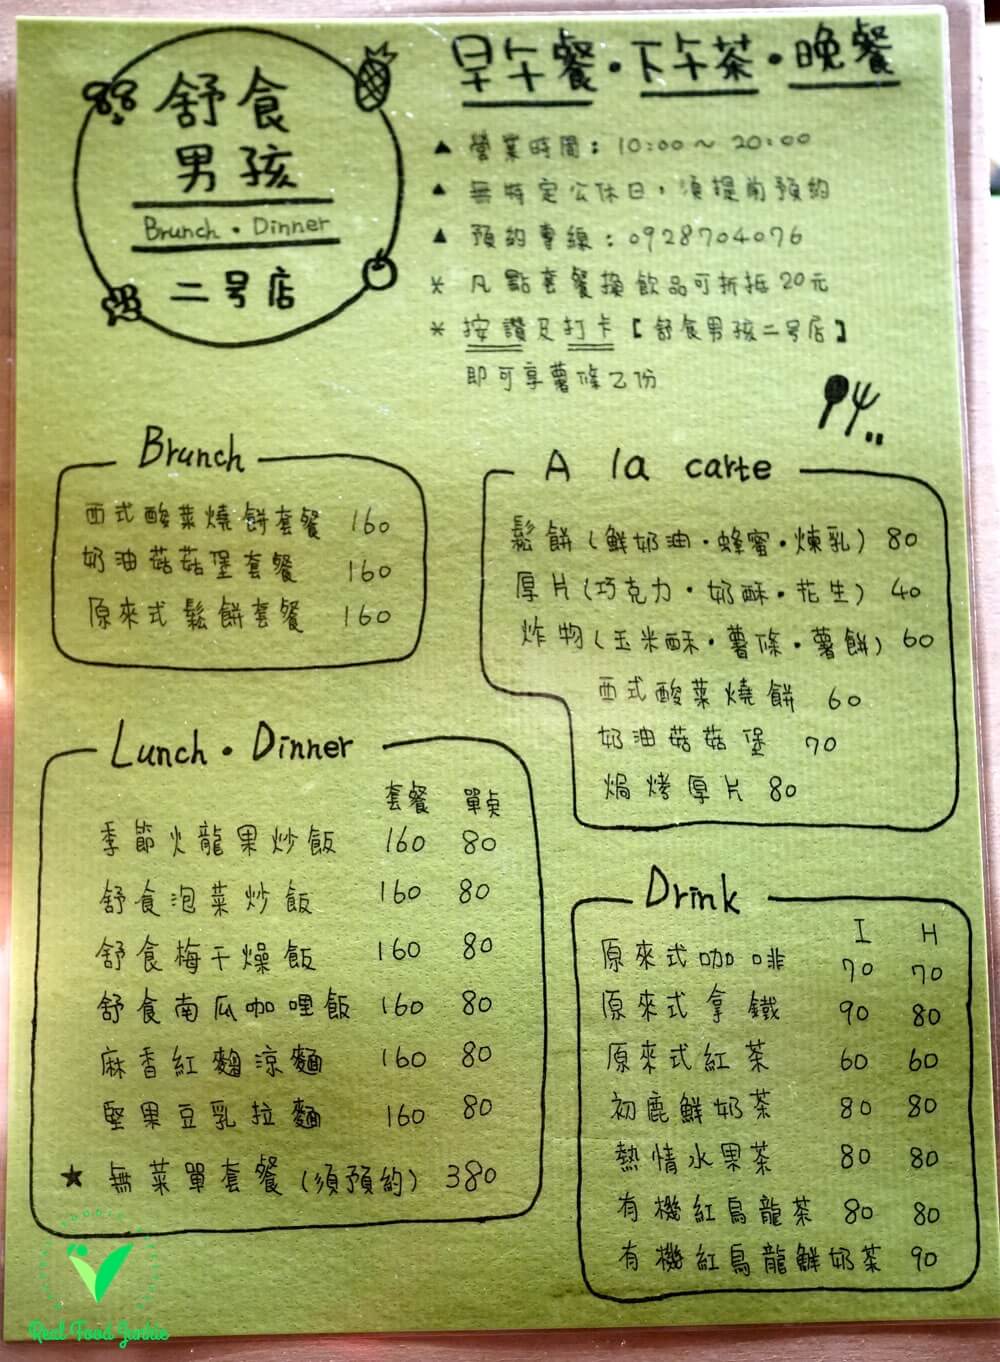 舒食
男孩
Brunch · Dinner
二号店
早午餐·下午茶·晚餐
▲ 營業時間：10:00～20:00
▲ 無特定公休日，須提前預約
▲ 預約專線：0928704076
* 凡點套餐換飲品可折抵20元
* 按讚及打卡【舒食男孩二号店】
即可享薯條乙份
Brunch
西式酸菜燒餅套餐 160
奶油菇菇堡套餐 160
原來式鬆餅套餐 160
A la carte
鬆餅(鮮奶油·蜂蜜·煉乳) 80
厚片(巧克力·奶酥·花生) 40
炸物(玉米酥·薯條·薯餅) 60
西式酸菜燒餅 60
奶油菇菇堡 70
焗烤厚片 80
Lunch · Dinner
套餐 單桌
季節火龍果炒飯 160 80
舒食泡菜炒飯 160 80
舒食梅干燥飯 160 80
舒食南瓜咖哩飯 160 80
麻香紅麴涼麵 160 80
堅果豆乳拉麵 160 80
★ 無菜單套餐(須預約) 380
Drink
I H
原來式咖啡 70 70
原來式拿鐵 90 80
原來式紅茶 60 60
初鹿鮮奶茶 80 80
熱情水果茶 80 80
有機紅烏龍茶 80 80
有機紅烏龍鮮奶茶 90
Real Food Junkie